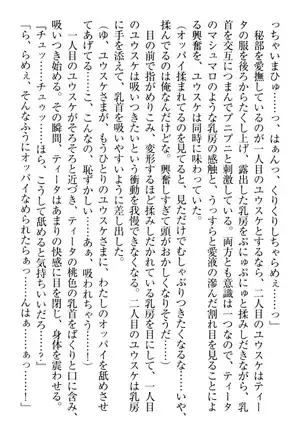 っちゃいまひゅ…っ。はぁんっ、くりくりしちゃらめぇ…っ」
秘部を愛撫しているのが一人目のユウスケとするなら、二人目のユウスケはティー
タの服を後ろからたくし上げ、露出した乳房をぷにゅぷにゅと揉みしだきながら、乳
首を交互につまんでプニプニと刺激している。両方とも意識は一つなので、ティータ
のマシュマロのような乳房の感触と、うっすらと愛液の滲んだ割れ目を見ることによ
る興奮を、ユウスケは同時に味わっていた。
(オッパイ揉まれてるのを見てると、見ただけでむしゃぶりつきたくなるな…。
揉んでるのは俺なんだけど。興奮しすぎて頭がおかしくなりそうだ…)
目の前で指がめりこみ、変形するほど揉みしだかれている乳房を目にして、一人目
のユウスケは乳首を吸いたいという衝動を我慢できなくなる。二人目のユウスケは乳房
に手を添えて、乳首を吸いやすいように差し出した。
(ゆ、ユウスケさまが、もうひとりのユウスケさまに、わたしのオッパイを舐めさせ
てあげてる…。こ、こんなの、恥ずかしい…ぁぁっ、吸われちゃう…！)
一人目のユウスケがそろそろと近づき、ティータの桃色の乳首をぱくりと口に含み、
吸いつき始める。その瞬間、ティータはあまりの快感に目を閉じ、身体を震わせる。
「チュッ……チュゥッ……ほら、こうして舐めると気持ちいいだろ……？」
「ら、らめぇ、そんなふうにオッパイなめられたらぁ……っ、あっ、
……んはぁ……ぁっ……！」